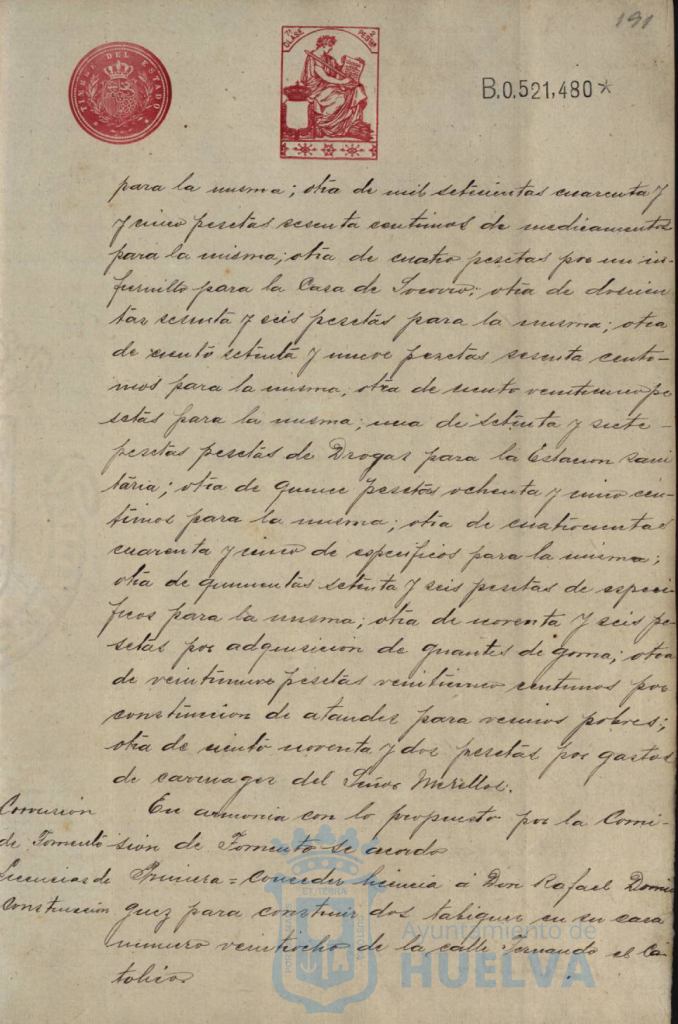 191
TIMBRE DEL ESTADO
7ª CLASE 2 PESETAS
B.0.521,480*
para la misma; otra de mil setecientas cuarenta y
y cinco pesetas sesenta centimos de medicamentos
para la misma; otra de cuatro pesetas por un in-
fiernillo para la Casa de Socorro; otra de doscien-
tas sesenta y seis pesetas para la misma; otra
de ciento setenta y nueve pesetas sesenta centi-
mos para la misma, otra de ciento veinticinco pe-
setas para la misma; una de setenta y siete
pesetas pesetas de Drogas para la Estacion sani
taria; otra de quince pesetas ochenta y cinco cen-
timos para la misma; otra de cuatrocientas
cuarenta y cinco de especificos para la misma;
otra de quinientas setenta y seis pesetas de especi-
ficos para la misma; otra de noventa y seis pe-
setas por adquisicion de guantes de goma; otra
de veintinueve pesetas veinticinco centimos por
construccion de ataudes para vecinos pobres;
otra de ciento noventa y dos pesetas por gastos
de carruages del Señor Morillos.
Comisión En armonia con lo propuesto por la Comi-
de Fomento sión de Fomento se acordo
Licencias de Primera = Conceder licencia á Don Rafael Domin
Construcción guez para construir dos tabiques en su casa
numero veintiocho de la calle Fernando el Ca-
tolico
Ayuntamiento de
HUELVA